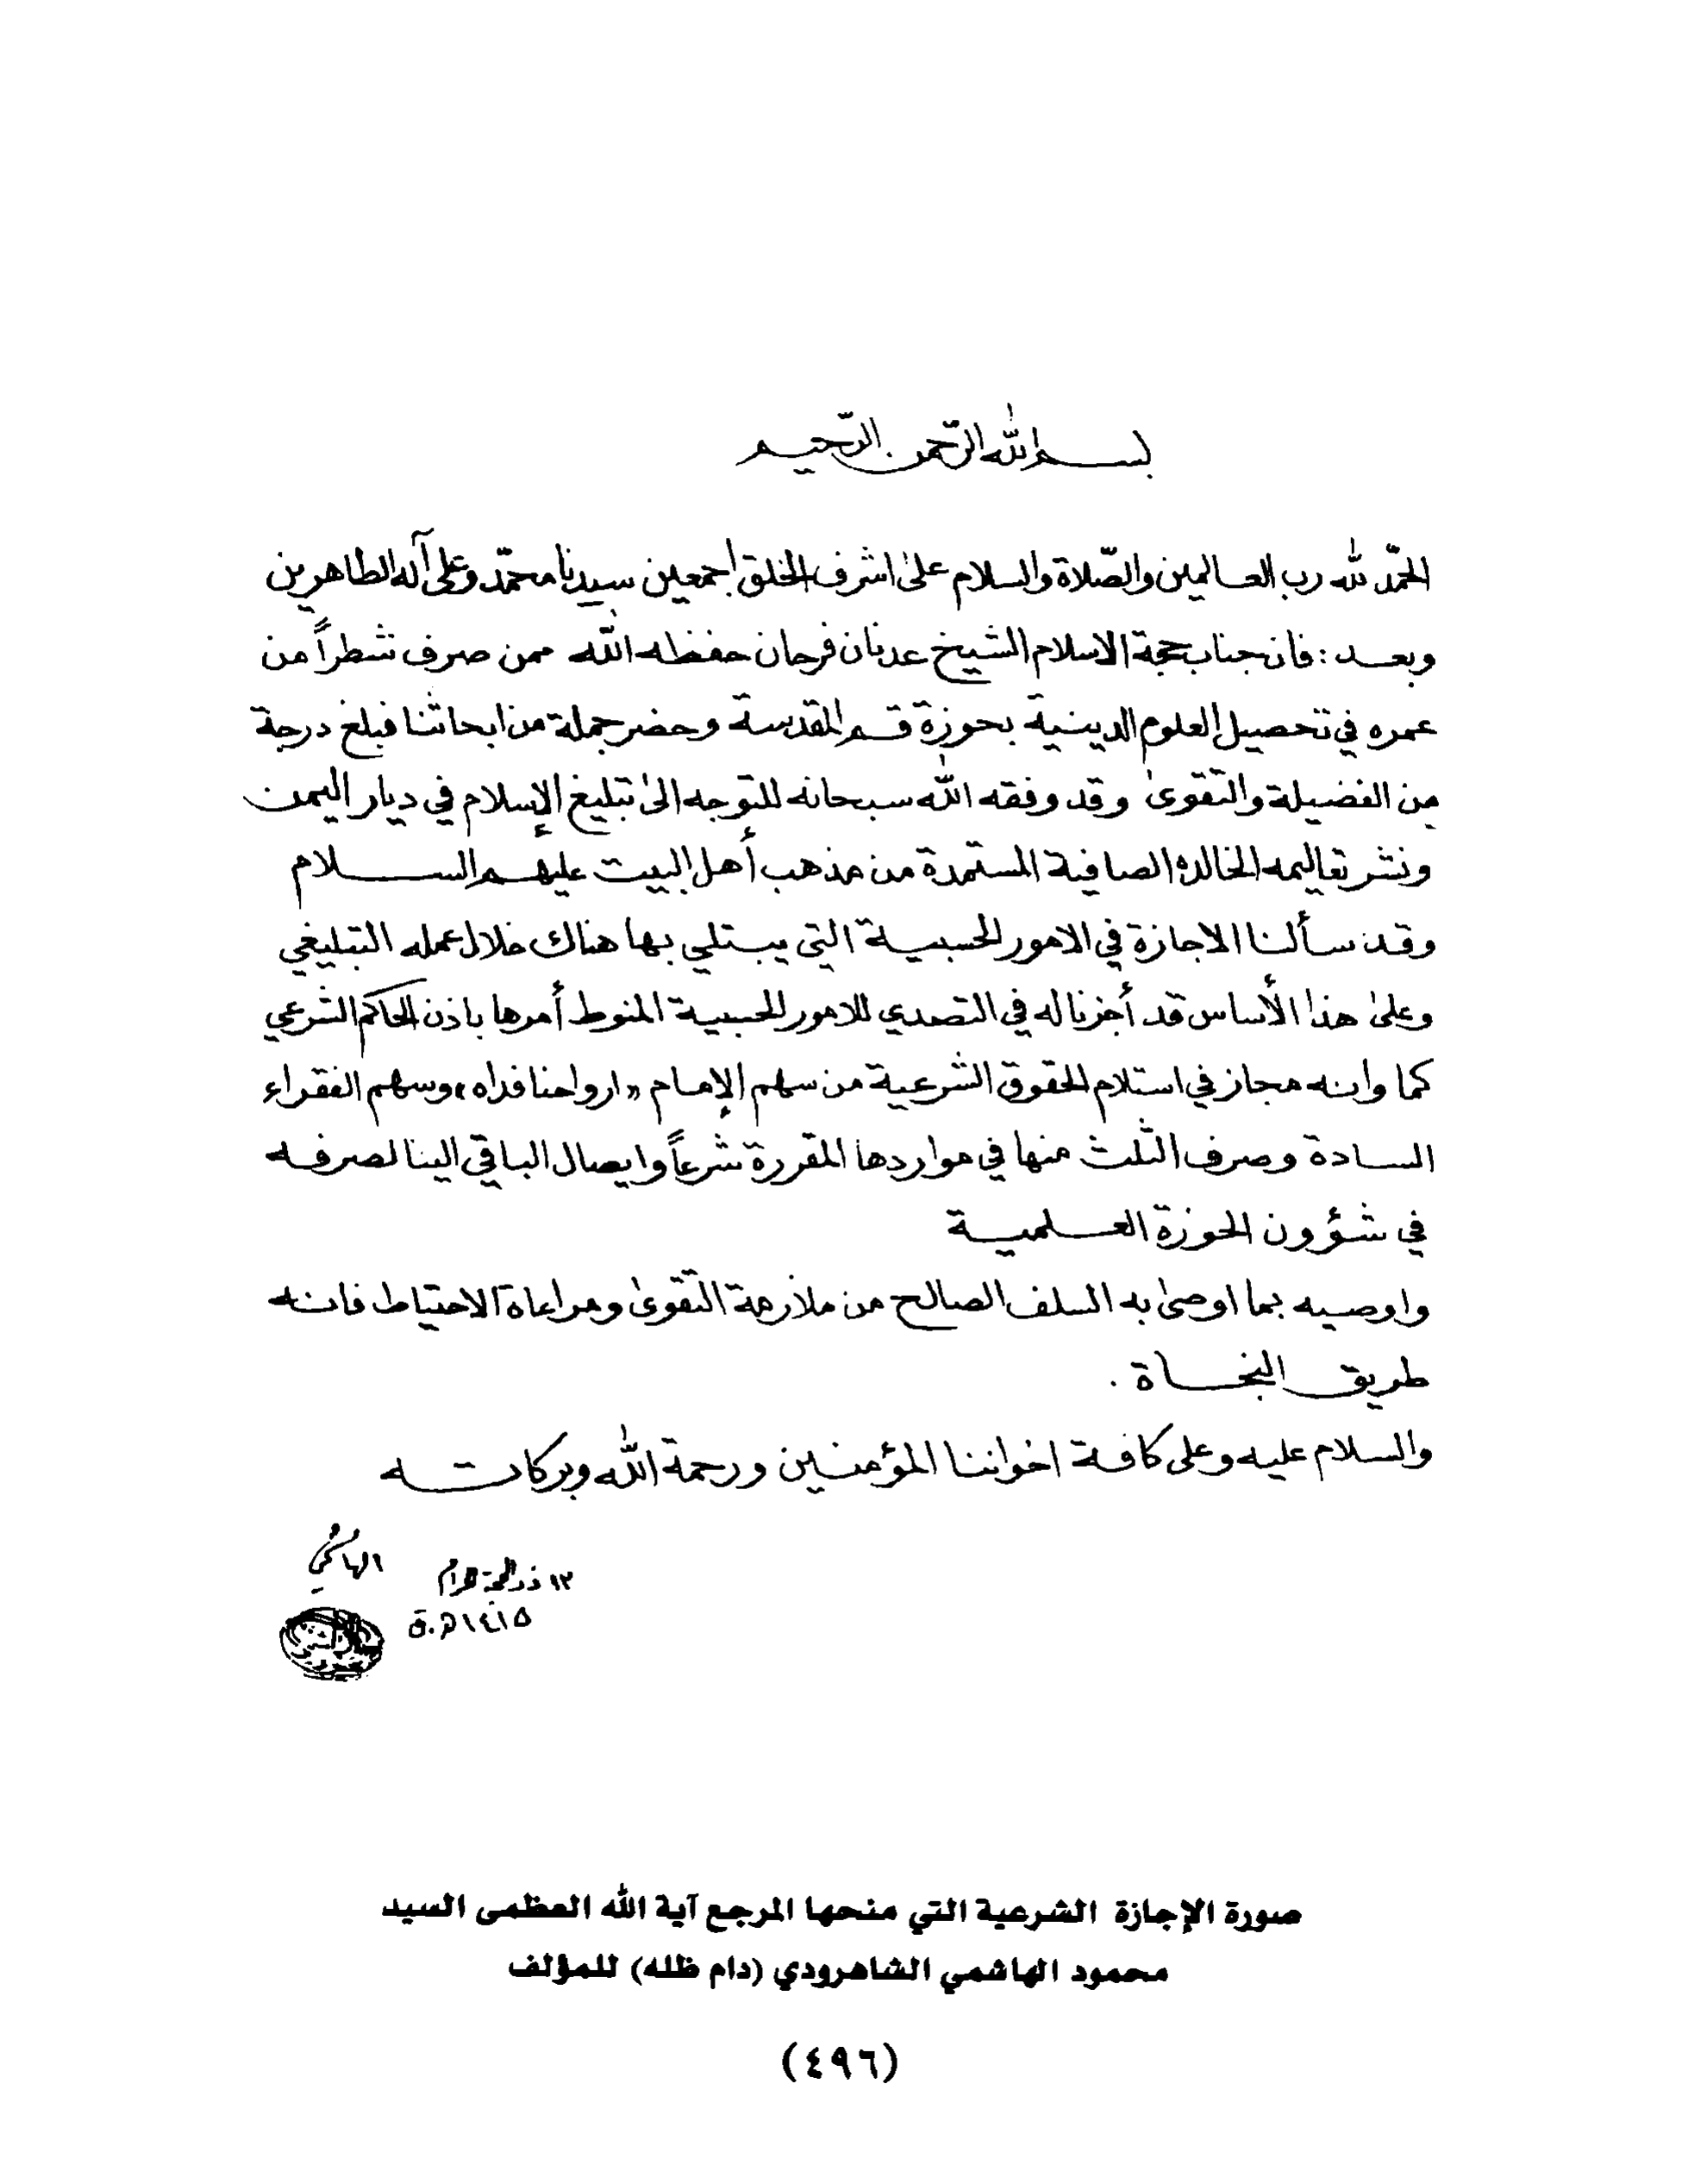 بسم الله الرحمن الرحيم
الحمد لله رب العالمين والصّلاة والسلام على اشرف الخلق اجمعين سيدنا محمّد وعلى آله الطاهرين
وبعد : فان جناب حجة الاسلام الشيخ عدنان فرحان حفظه الله ممن صرف شطراً من
عمره في تحصيل العلوم الدينية بحوزة قم المقدسة وحضر جملة من ابحاثنا فبلغ درجة
من الفضيلة والتقوى وقد وفقه الله سبحانه للتوجه الى تبليغ الإسلام في ديار اليمن
ونشر تعاليمه الخالدة الصافية المستمدة من مذهب أهل البيت عليهم السلام
وقد سألنا الاجازة في الامور الحسبية التي يبتلي بها هناك خلال عمله التبليغي
وعلى هذا الأساس قد أجزنا له في التصدي للامور الحسبية المنوط أمرها باذن الحاكم الشرعي
كما وانه مجاز في استلام الحقوق الشرعية من سهم الإمام «ارواحنا فداه» وسهم الفقراء
السادة وصرف الثلث منها في مواردها المقررة شرعاً وايصال الباقي الينا لصرفه
في شؤون الحوزة العلمية
واوصيه بما اوصى به السلف الصالح من ملازمة التقوى ومراعاة الاحتياط فانه
طريق النجاة .
والسلام عليه وعلى كافة اخواننا المؤمنين ورحمة الله وبركاته
الهاشمي
١٢ ذي الحجة الحرام
١٤١٥ هـ.ق
صورة الإجازة الشرعية التي منحها المرجع آية الله العظمى السيد
محمود الهاشمي الشاهرودي (دام ظله) للمؤلف
(٤٩٦)